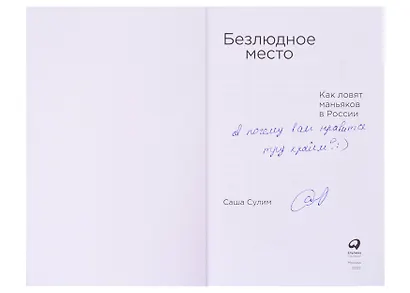 Безлюдное
место
Как ловят
маньяков
в России
А почему вам нравится
тру крайм? :)
Саша Сулим